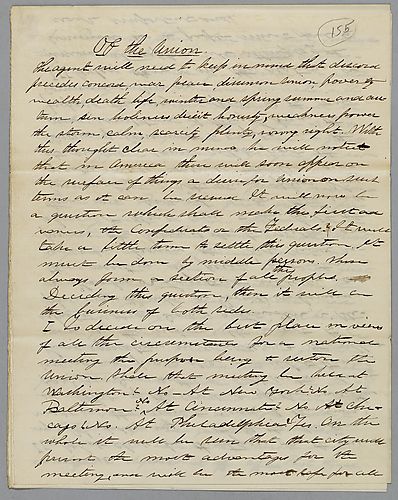 155
Of the Union.
The agent will need to keep in mind that discord
precedes concord, war peace disunion union, poverty
wealth, death life winter and spring summer and au-
tum, sin holiness deceit honesty, weakness power
the storm, calm scarcity plenty, wrong right. With
this thought clear in mind he will note
that in America there will soon appear on
the surface of things a desire for Union on such
terms as it can be secured It will now be
a question which shall make the first ad
vances, the Confederats or the Federals? It will
take a little time to settle this question. It
must be done by middle persons. These
always form a section of all the peoples.
Deciding this question, then it will be
the business of both sides.
1 To decide on the best place in view
of all the circumstances for a national
meeting the purpose being to restore the
Union. Shall that meeting be held at
Washington? No— At New York? No. At
Baltimore? No. At Cincinnati? No At Chi-
cago? No. At Philadelphia? Yes. On the
whole it will be seen that that city will
present the most advantages for the
meeting, and will be the most safe for all